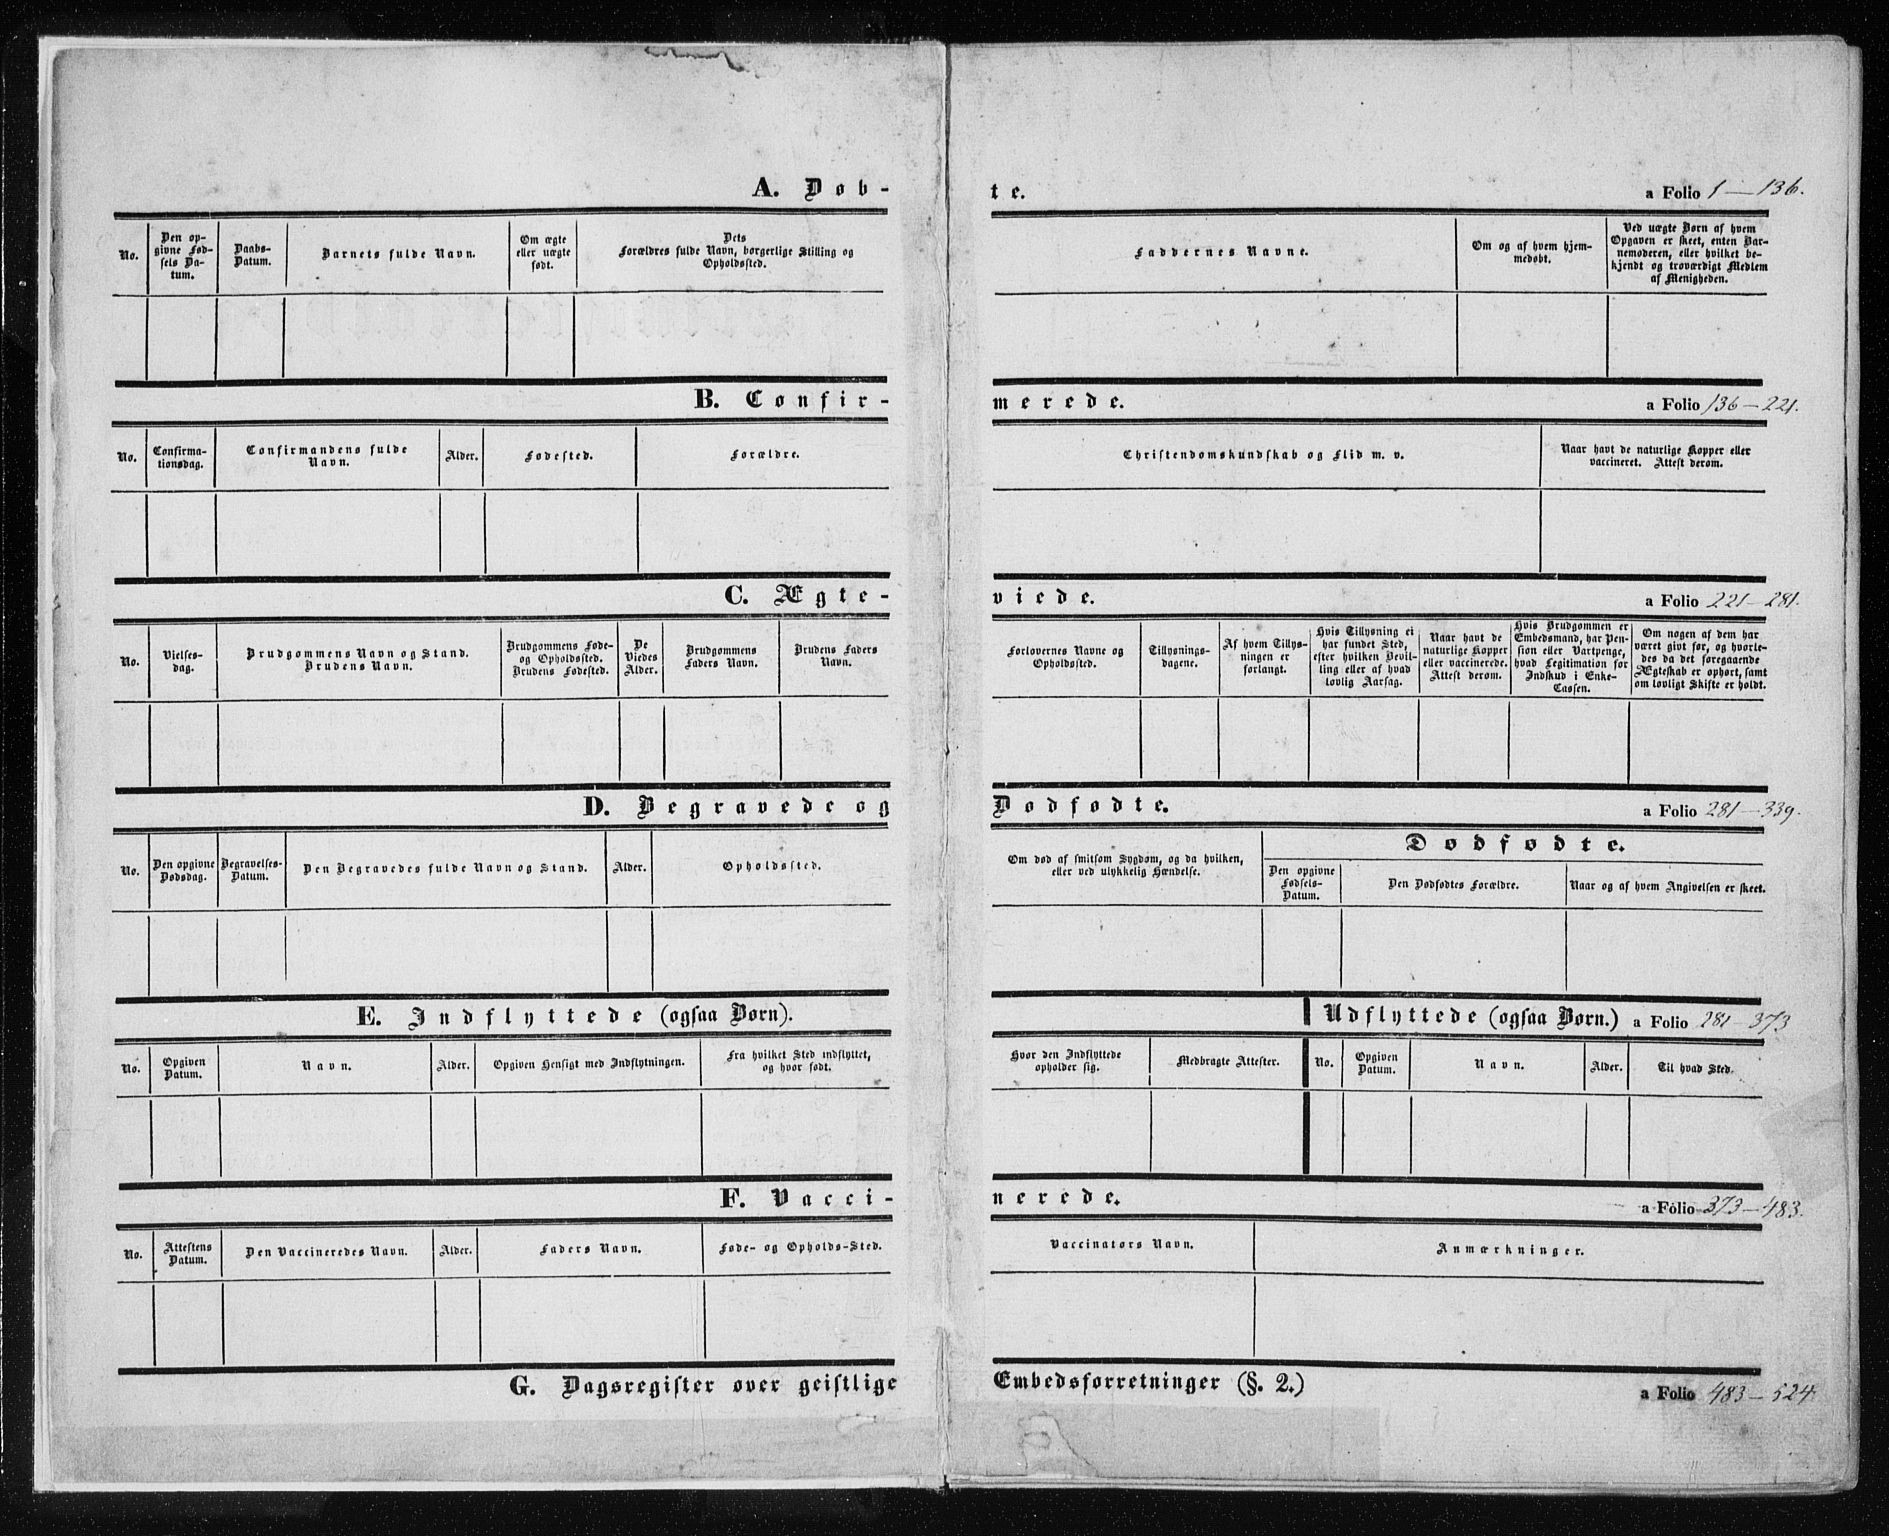 A. Døb-te. a Folio 1 — 136.
No.
Den op-
givne Fød-
sels Da-
tum.
Daabs-
Datum.
Barnets fulde Navn.
Om ægte
eller uægte
født.
Dets
Forældres fulde Navn, borgerlige Stilling og
Opholdssted.
Faddernes Navne.
Om og af hvem hjem-
medøbt.
Ved uægte Børn af hvem
Opgaven er skeet, enten Bar-
nemoderen, eller hvilket be-
kjendt og troværdigt Medlem
af Menigheden.
B. Confir-merede. a Folio 136 — 221.
No.
Confirma-
tionsdag.
Confirmandens fulde
Navn.
Alder.
Fødested.
Forældre.
Christendomskundskab og Flid m. v.
Naar havt de naturlige Kopper eller
vaccineret. Attest derom.
C. Ægte-viede. a Folio 221 — 281.
No.
Vielses-
dag.
Brudgommens Navn og Stand.
Brudens Navn.
Brudgommens Føde-
og Opholdssted.
Brudens Fødested.
De
Viedes
Alder.
Brudgommens
Faders Navn.
Brudens Faders
Navn.
Forlovernes Navne og
Opholdssted.
Tillysnings-
dagene.
Af hvem Tillys-
ningen er
forlangt.
Hvis Tillysning ei
har fundet Sted,
efter hvilken Bevil-
ling eller af hvad
lovlig Aarsag.
Naar havt de
naturlige Kopper
eller vaccinerede.
Attest derom.
Hvis Brudgommen er
Embedsmand, har Pen-
sion eller Vartpenge,
hvad Legitimation for
Indskud i Enke-
Cassen.
Om nogen af dem har
været givt før, og hvorle-
des da det foregaaende
Ægteskab er ophørt, samt
om lovligt Skifte er holdt.
D. Begravede og Dødfødte. a Folio 281 — 339.
No.
Den opgivne
Dødsdag.
Begravelses-
Datum.
Den Begravedes fulde Navn og Stand.
Alder.
Opholdssted.
Om død af smitsom Sygdom, og da hvilken,
eller ved ulykkelig Hændelse.
Dødfødte.
Den opgivne
Fødsels-
Datum.
Den Dødfødtes Forældre.
Naar og af hvem Angivelsen er skeet.
E. Indflyttede (ogsaa Børn). Udflyttede (ogsaa Børn.) a Folio 281 — 373
No.
Opgiven
Datum.
Navn.
Alder.
Opgiven Hensigt med Indflytningen.
Fra hvilket Sted indflyttet,
og hvor født.
Hvor den Indflyttede
opholder sig.
Medbragte Attester.
No.
Opgiven
Datum.
Navn.
Alder.
Til hvad Sted.
F. Vacci-nerede. a Folio 373 — 483.
No.
Attestens
Datum.
Den Vaccineredes Navn.
Alder.
Faders Navn.
Føde- og Opholds-Sted.
Vaccinators Navn.
Anmærkninger.
G. Dagsregister over geistlige Embedsforretninger (§. 2.) a Folio 483 — 524.